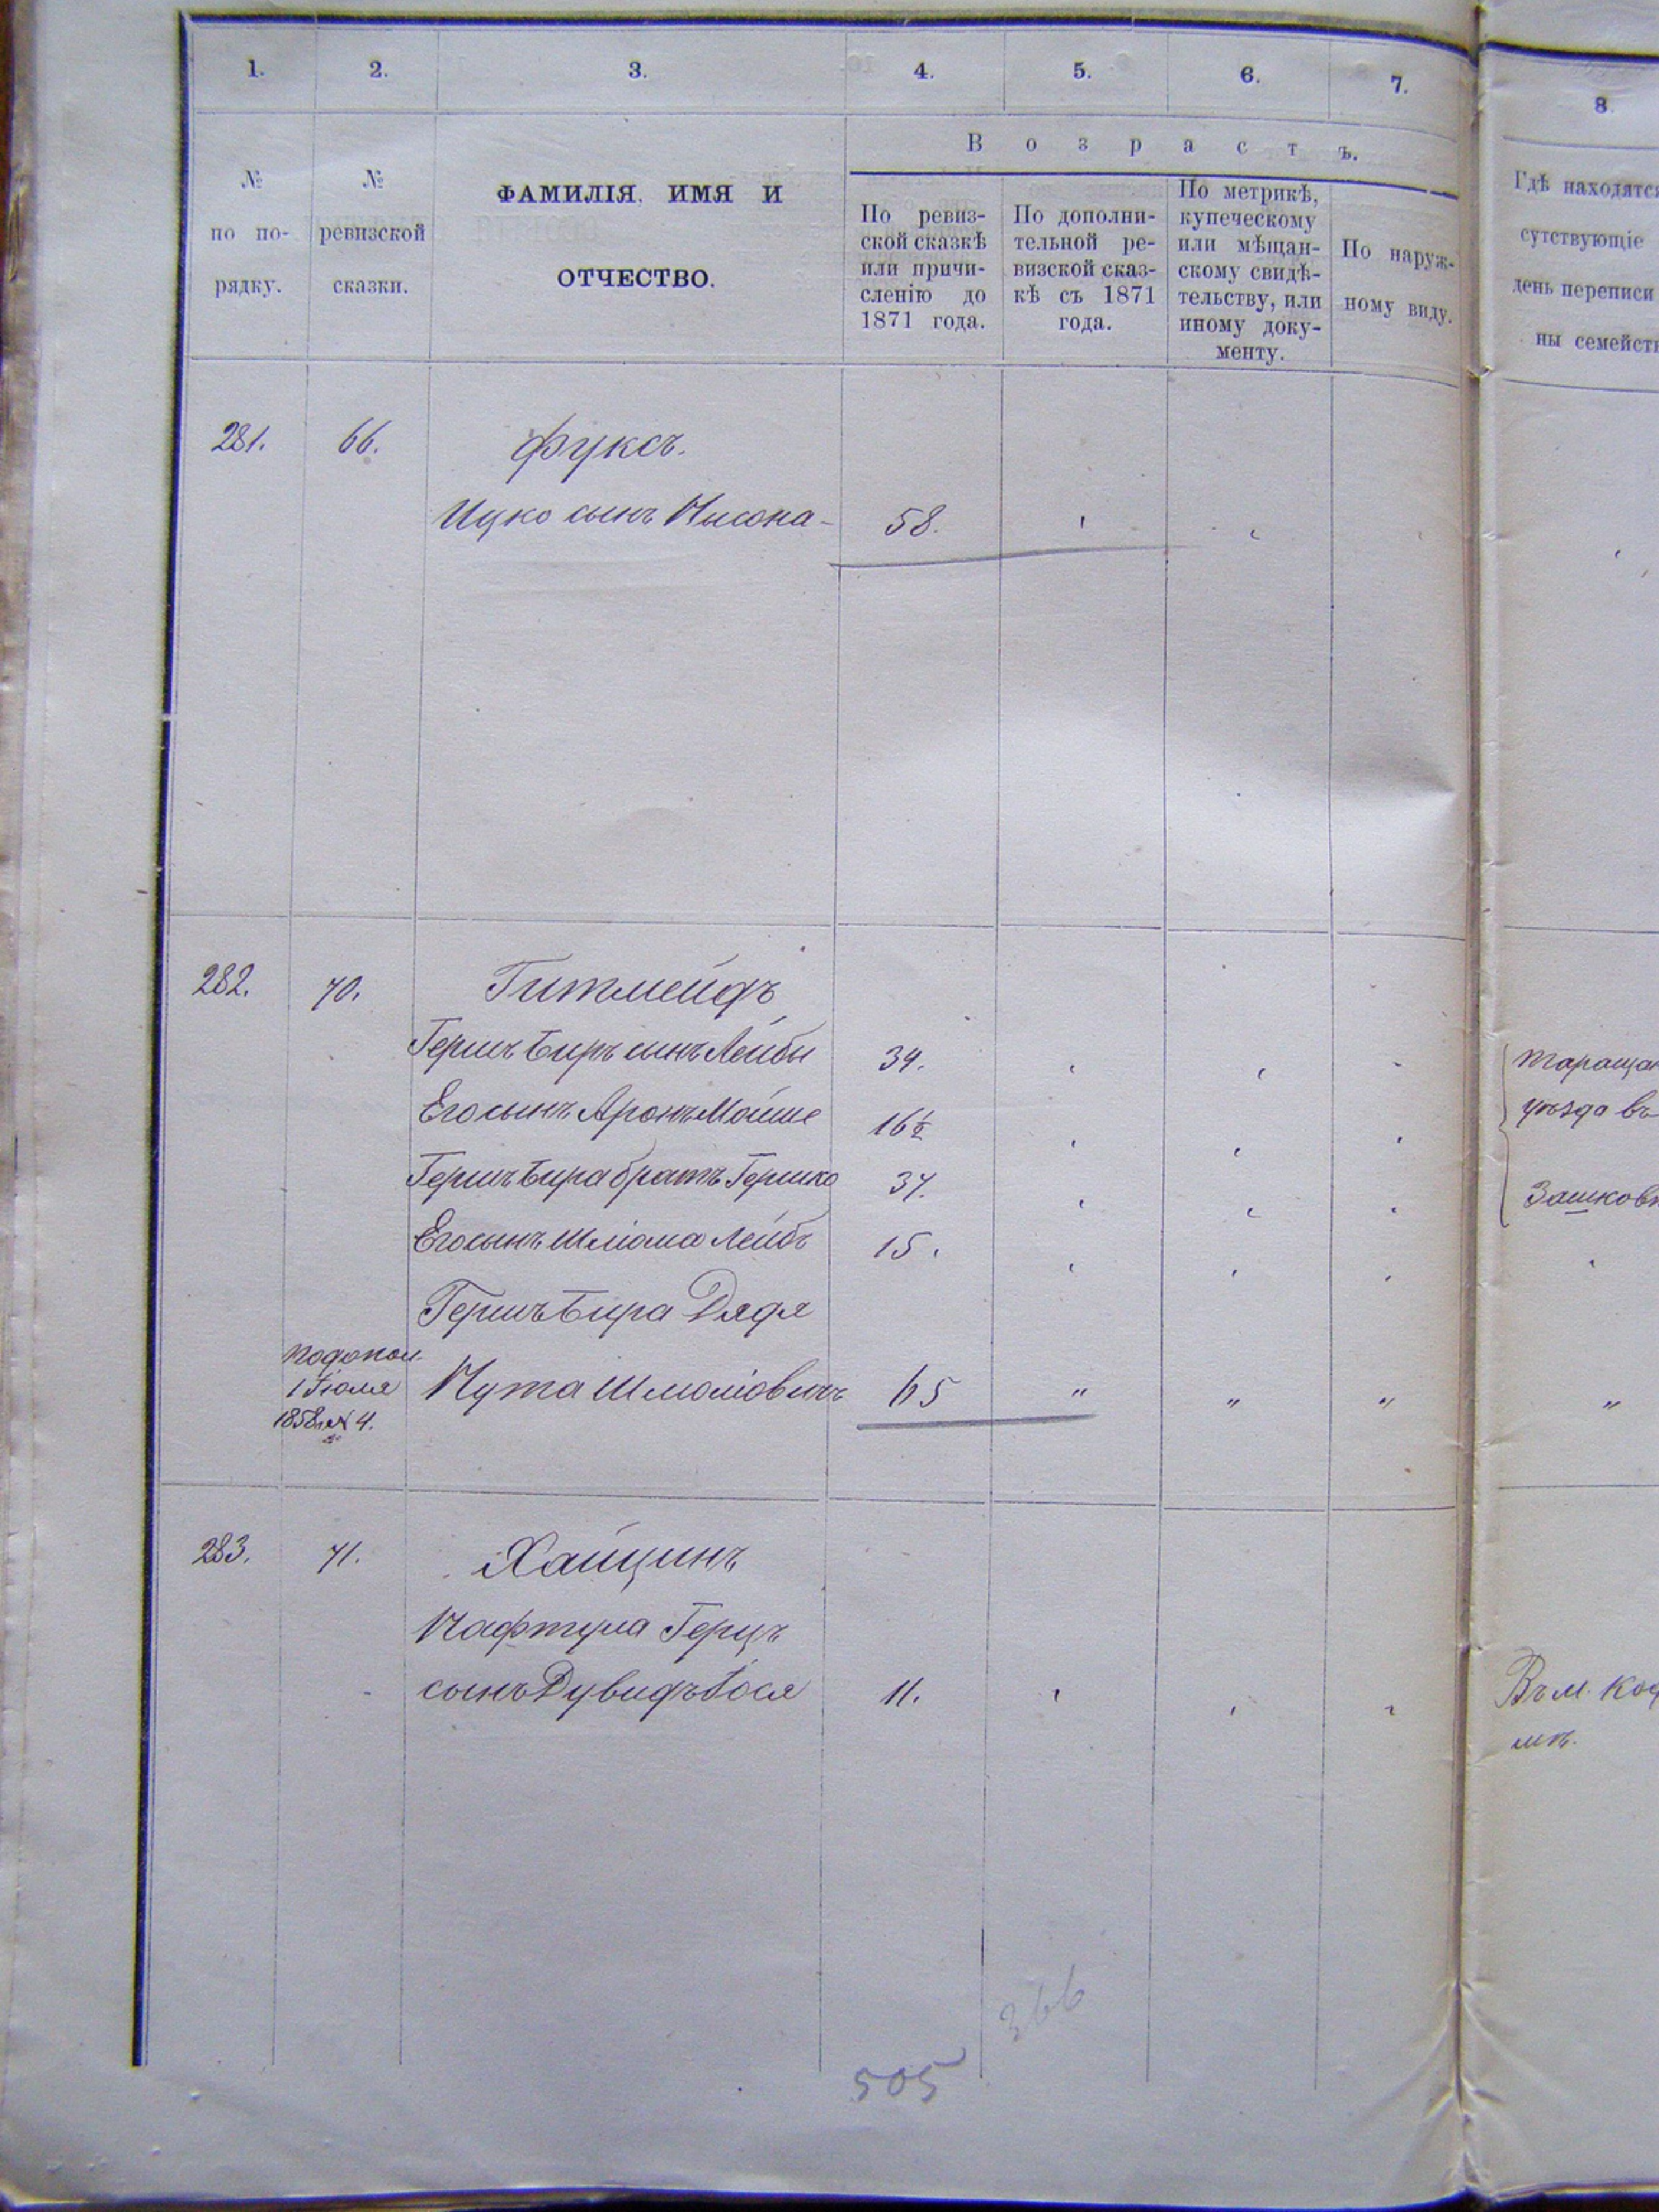 1. 2. 3. 4. 5. 6. 7. 8.
В о з р а с т ъ.
№ по по-
рядку.
№
ревизской
сказки.
ФАМИЛІЯ, ИМЯ И
ОТЧЕСТВО.
По ревиз-
ской сказкѣ
или причи-
сленію до
1871 года.
По дополни-
тельной ре-
визской сказ-
кѣ съ 1871
года.
По метрикѣ,
купеческому
или мѣщан-
скому свидѣ-
тельству, или
иному доку-
менту.
По наруж-
ному виду.
Гдѣ находятся
сутствующіе
день переписи
ны семейств
281. 66. Фуксъ.
Ицко сынъ Нисона - 58.
282. 70. Гитмейдъ
Гершъ Беръ сынъ Лейбы 34.
Его сынъ Аронъ Мойше 16½
Гершъ Бера братъ Гершко 37.
Его сынъ Шліома Лейбъ 15.
Гершъ Бера Дядя
Нута Шмоліовичъ 65 " " " "
1 Іюля
1858 № 4.
Таращан
уѣзда въ
283. 71. Хайщинъ
Нафтула Герцъ
сынъ Дувидъ Іося 11.
Въ м. Код
мѣ.
366
505